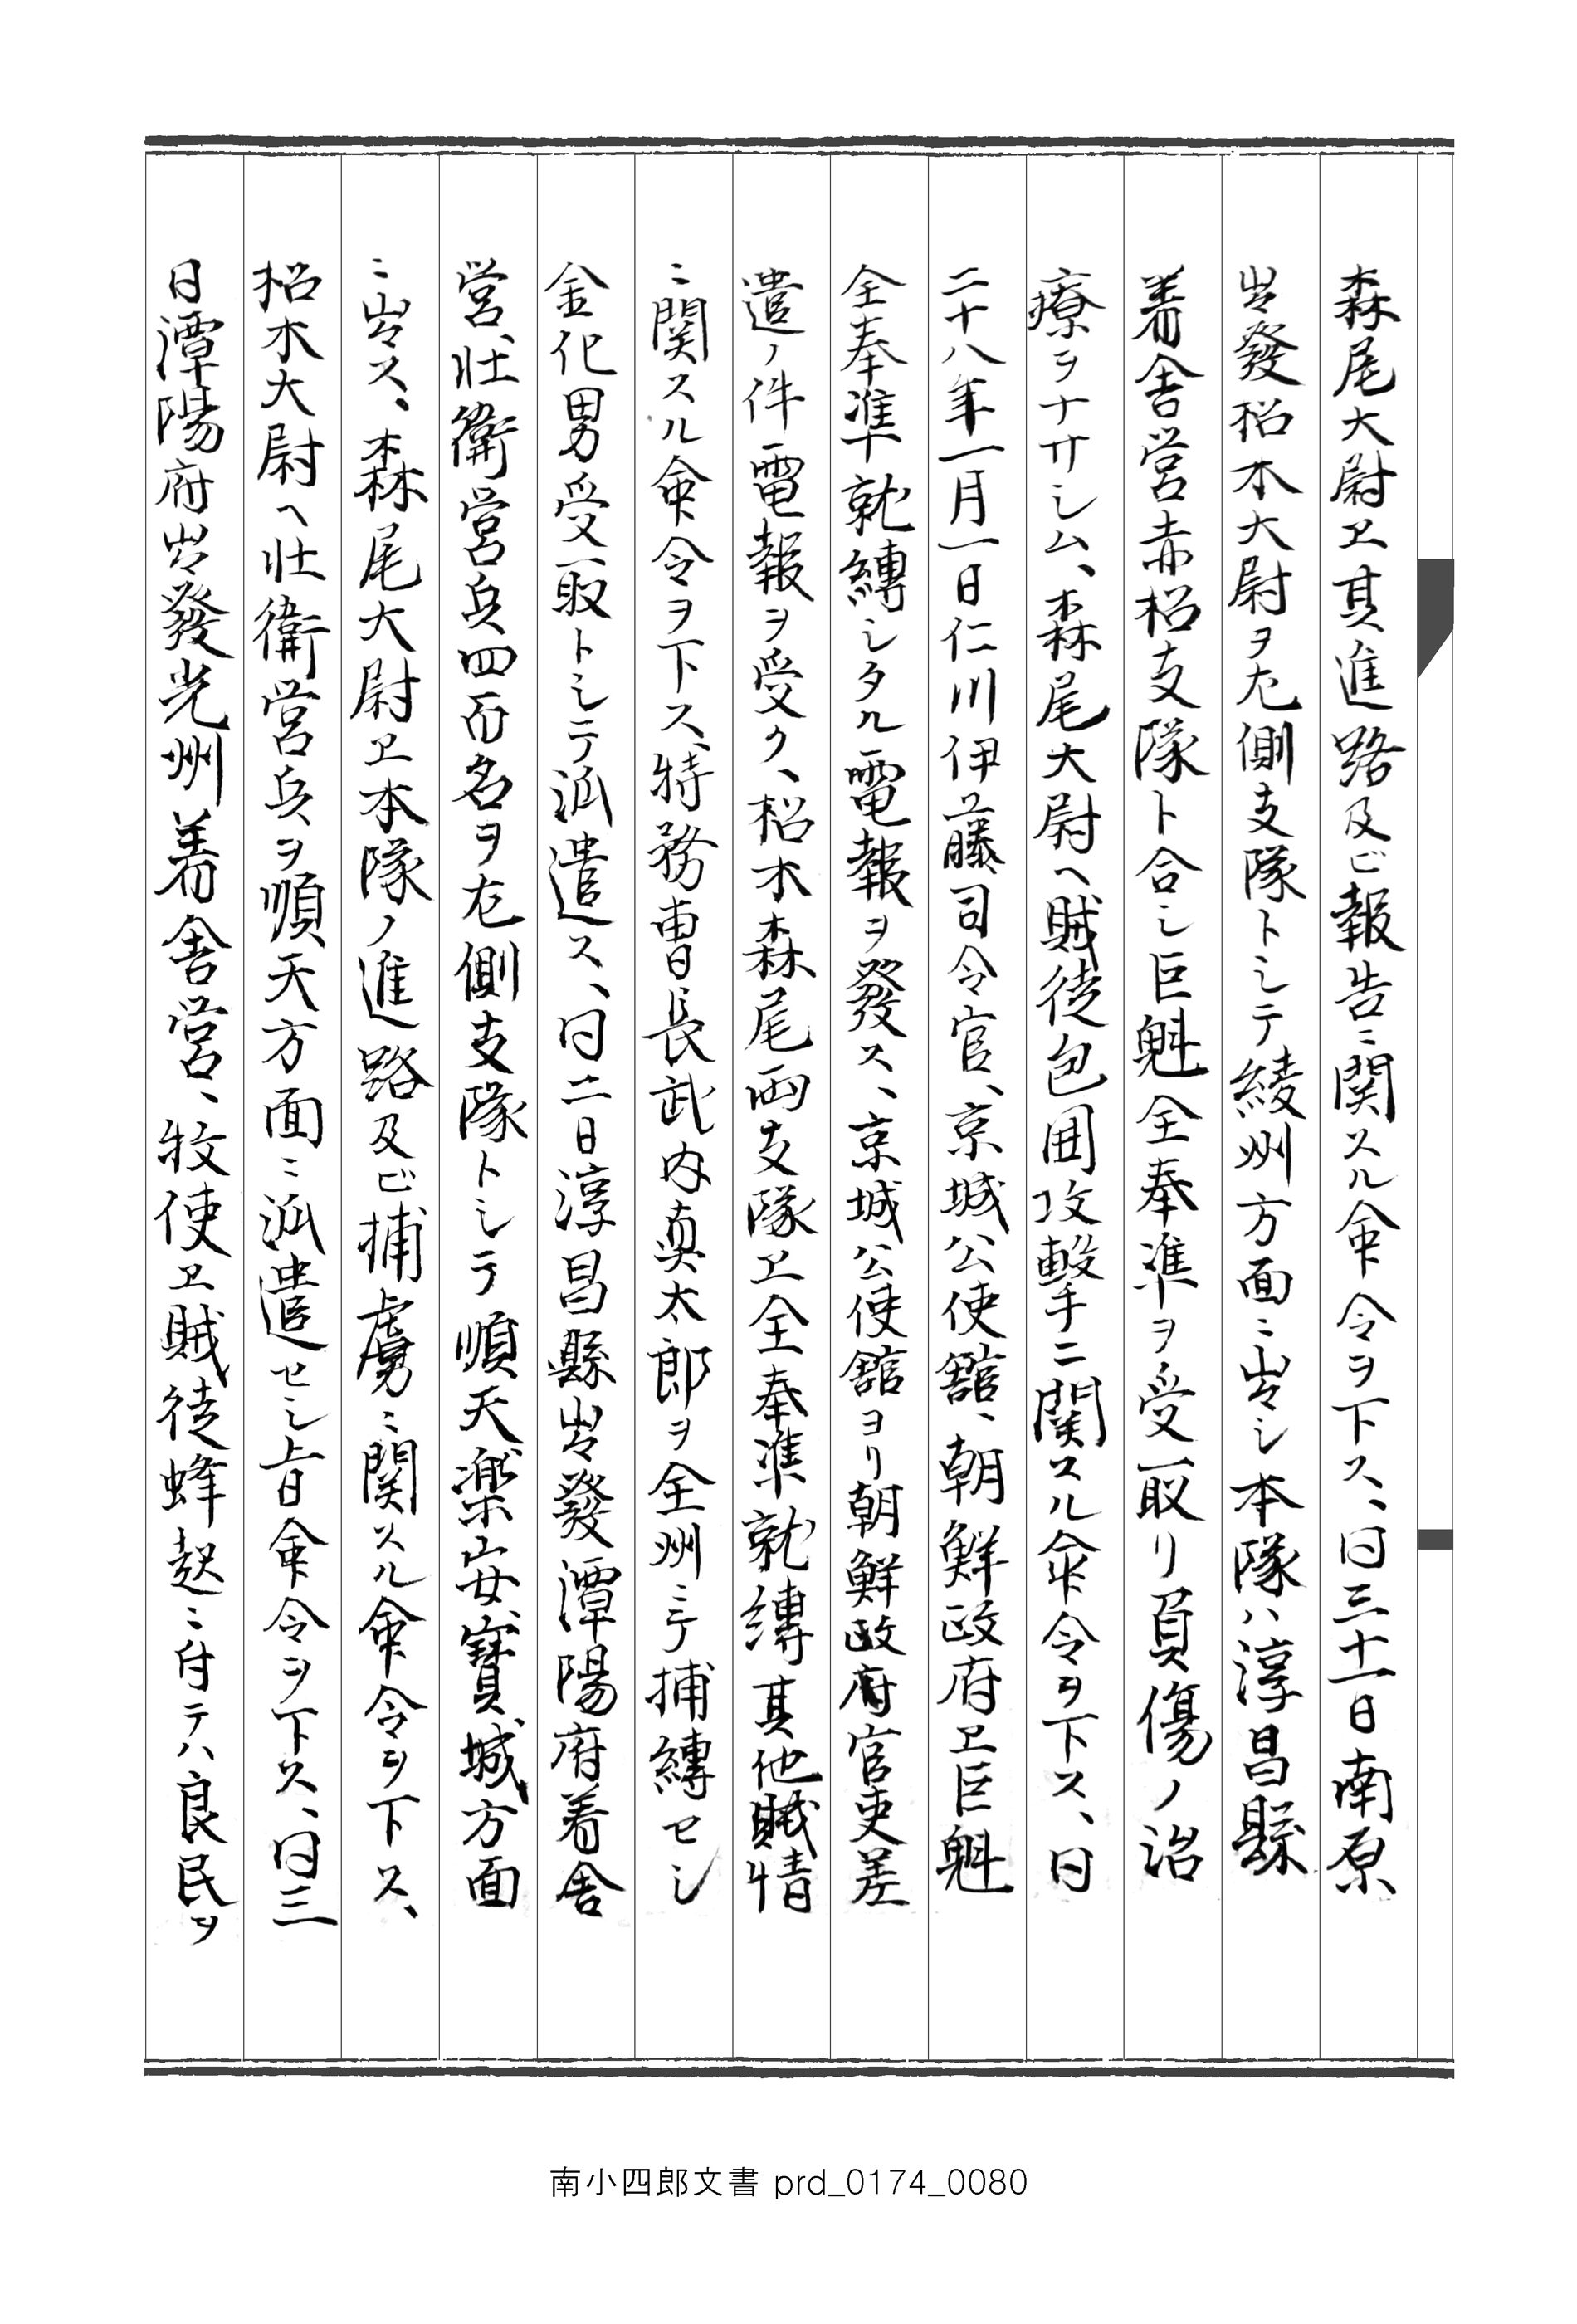 森尾大尉ヱ其進路及ビ報告ニ関スル命令ヲ下ス、同三十一日南原
出發松木大尉ヲ左側支隊トシテ綾州方面ニ出シ本隊ハ淳昌縣
着舎営赤松支隊ト合シ巨魁全奉準ヲ受取リ負傷ノ治
療ヲナサシム、森尾大尉ヘ賊徒包囲攻撃ニ関スル命令ヲ下ス、日
二十八年一月一日仁川伊藤司令官、京城公使舘、朝鮮政府ヱ巨魁
全奉準就縛シタル電報ヲ發ス、京城公使舘ヨリ朝鮮政府官吏差
遣ノ件電報ヲ受ク、松木森尾両支隊ヱ全奉準就縛其他賊情
ニ関スル命令ヲ下ス、特務曹長武内真太郎ヲ全州ニテ捕縛セシ
金化男受取トシテ派遣ス、同二日淳昌縣出發潭陽府着舎
営、壮衛営兵四百名ヲ左側支隊トシテ順天楽安寳城方面
ニ出ス、森尾大尉ヱ本隊ノ進路及ビ捕虜ニ関スル命令ヲ下ス、
松木大尉ヘ壮衛営兵ヲ順天方面ニ派遣セシ旨命令ヲ下ス、同三
日潭陽府出發光州着舎営、牧使ヱ賊徒蜂起ニ付テハ良民ヲ
南小四郎文書 prd_0174_0080